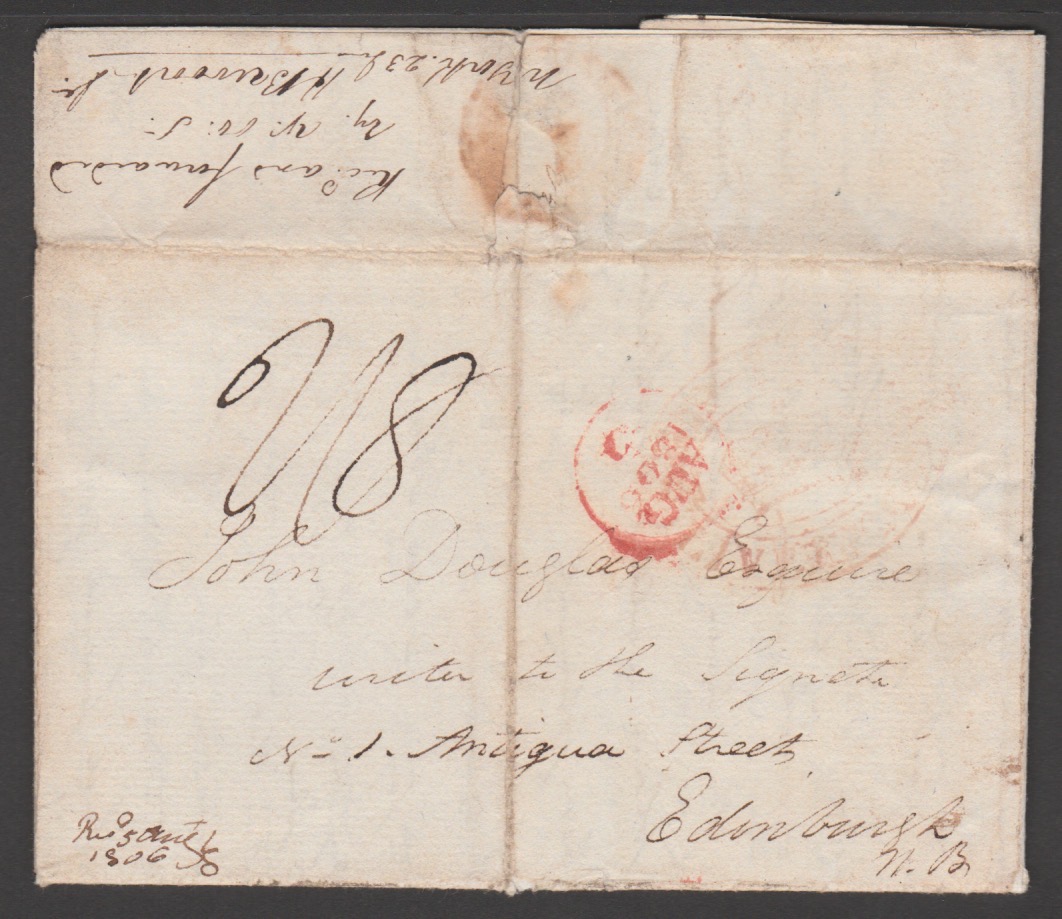 Rec.d and forwarded
by yr. ob. S.
N York. 23
2/8
AUG
John Douglas Esquire
writer to the Signet
No 1. Antigua Street
Edinburgh
N. B
Rec.d
1806